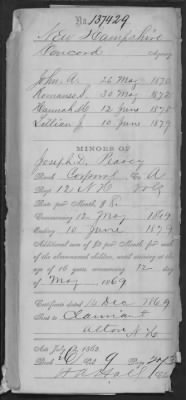 No. 137429
New Hampshire
Concord Agency
John A. 26 May 1870
Romanes S. 30 May 1872
Hannah 12 June 1875
Lillian J. 10 June 1879
MINORS OF
Joseph D.
Rank Corporal Co. A
Reg't 12 N.H. Vols
Rate per Month, $8.
Commencing 12 May 1869
Ending 10 June 1879
Additional sum of $2 per Month for each
of the abovenamed children, until arriving at the
age of 16 years, commencing 12 day
of May 1869
Certificate dated 14 Dec 1869
Sent to Claimant
Alton N.H.
Act July 14, 1862.
Book Vol. 9 Page